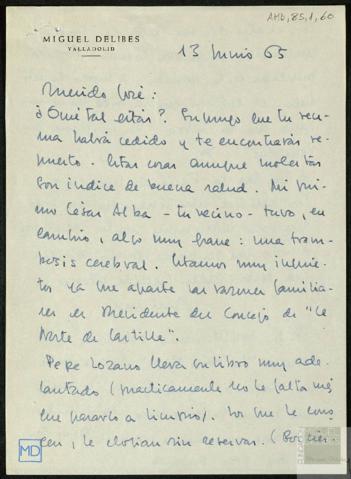 AMD, 85, 1, 60
MIGUEL DELIBES
VALLADOLID
13 junio 65
Querido José:
¿Qué tal estás?. Supongo que tu reu-
ma habrá cedido y te encontrarás re-
puesto. Estas cosas aunque molestas
son índice de buena salud. Mi pri-
mo César Alba - tu vecino - tuvo, en
cambio, algo muy grave: una trom-
bosis cerebral. Estamos muy inquie-
tos ya que aparte las razones familia-
res es Presidente del Consejo de "El
Norte de Castilla".
Pepe Lozano lleva su libro muy ade-
lantado (prácticamente no le falta más
que pasarlo a limpio). Los que le cono-
cen, le elogian sin reservas. (
MD